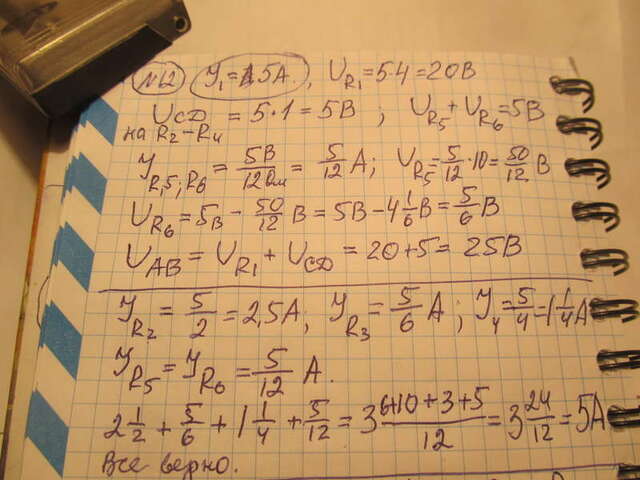 №12 У₁=5А, U_R₁=5·4=20В
U_CD = 5·1=5В; U_R₅+U_R₆=5В
на R₂-R₄
У_R₅;R₆ = 5В/12Ом = 5/12 А; U_R₅=5/12·10=50/12 В
U_R₆=5В-50/12 В=5В-4 1/6 В=5/6 В
U_AB = U_R₁ + U_CD = 20+5= 25В
У_R₂=5/2=2,5А; У_R₃=5/6 А; У₄=5/4=1 1/4 А
У_R₅=У_R₆=5/12 А.
2 1/2 + 5/6 + 1 1/4 + 5/12 = 3 (6+10+3+5)/12 = 3 24/12 = 5А
Все верно.